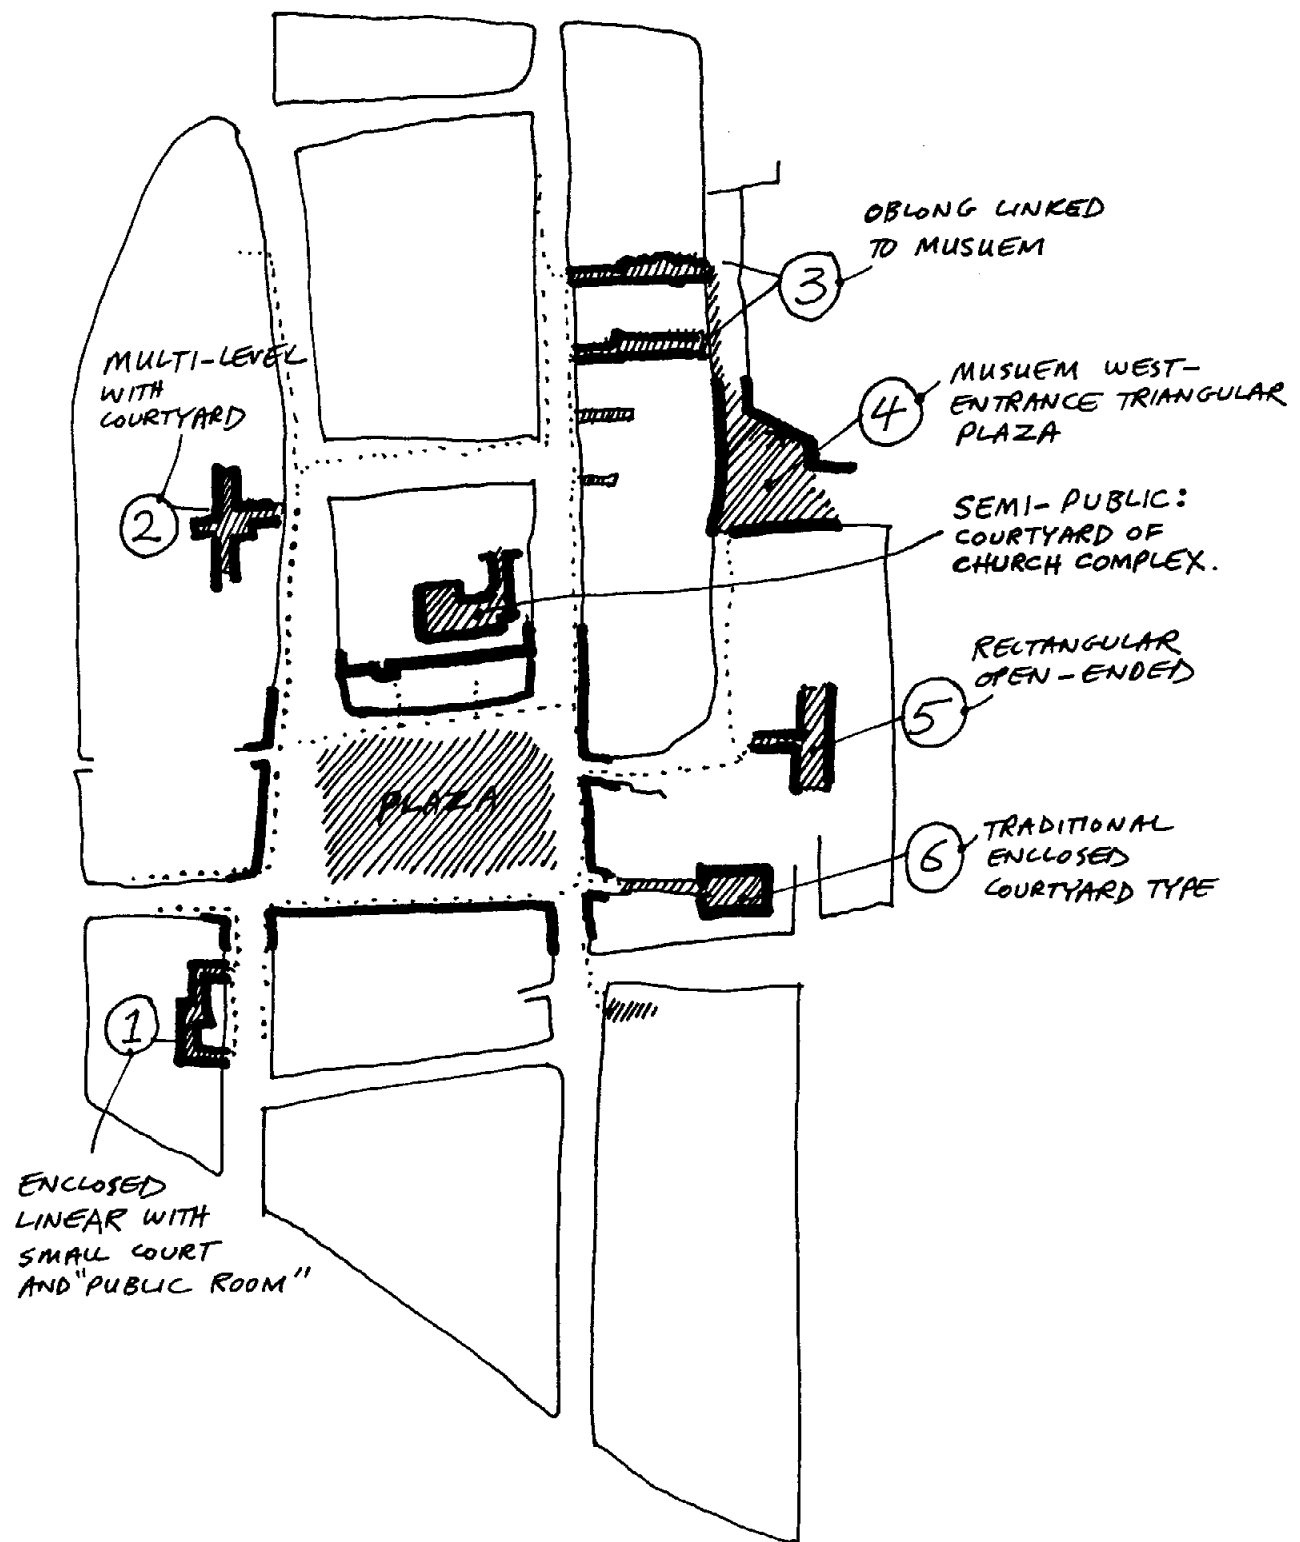 OBLONG LINKED
TO MUSUEM
3
MULTI-LEVEL
WITH
COURTYARD
2
4
MUSUEM WEST-
ENTRANCE TRIANGULAR
PLAZA
SEMI-PUBLIC:
COURTYARD OF
CHURCH COMPLEX.
RECTANGULAR
OPEN-ENDED
5
PLAZA
6
TRADITIONAL
ENCLOSED
COURTYARD TYPE
1
ENCLOSED
LINEAR WITH
SMALL COURT
AND "PUBLIC ROOM"